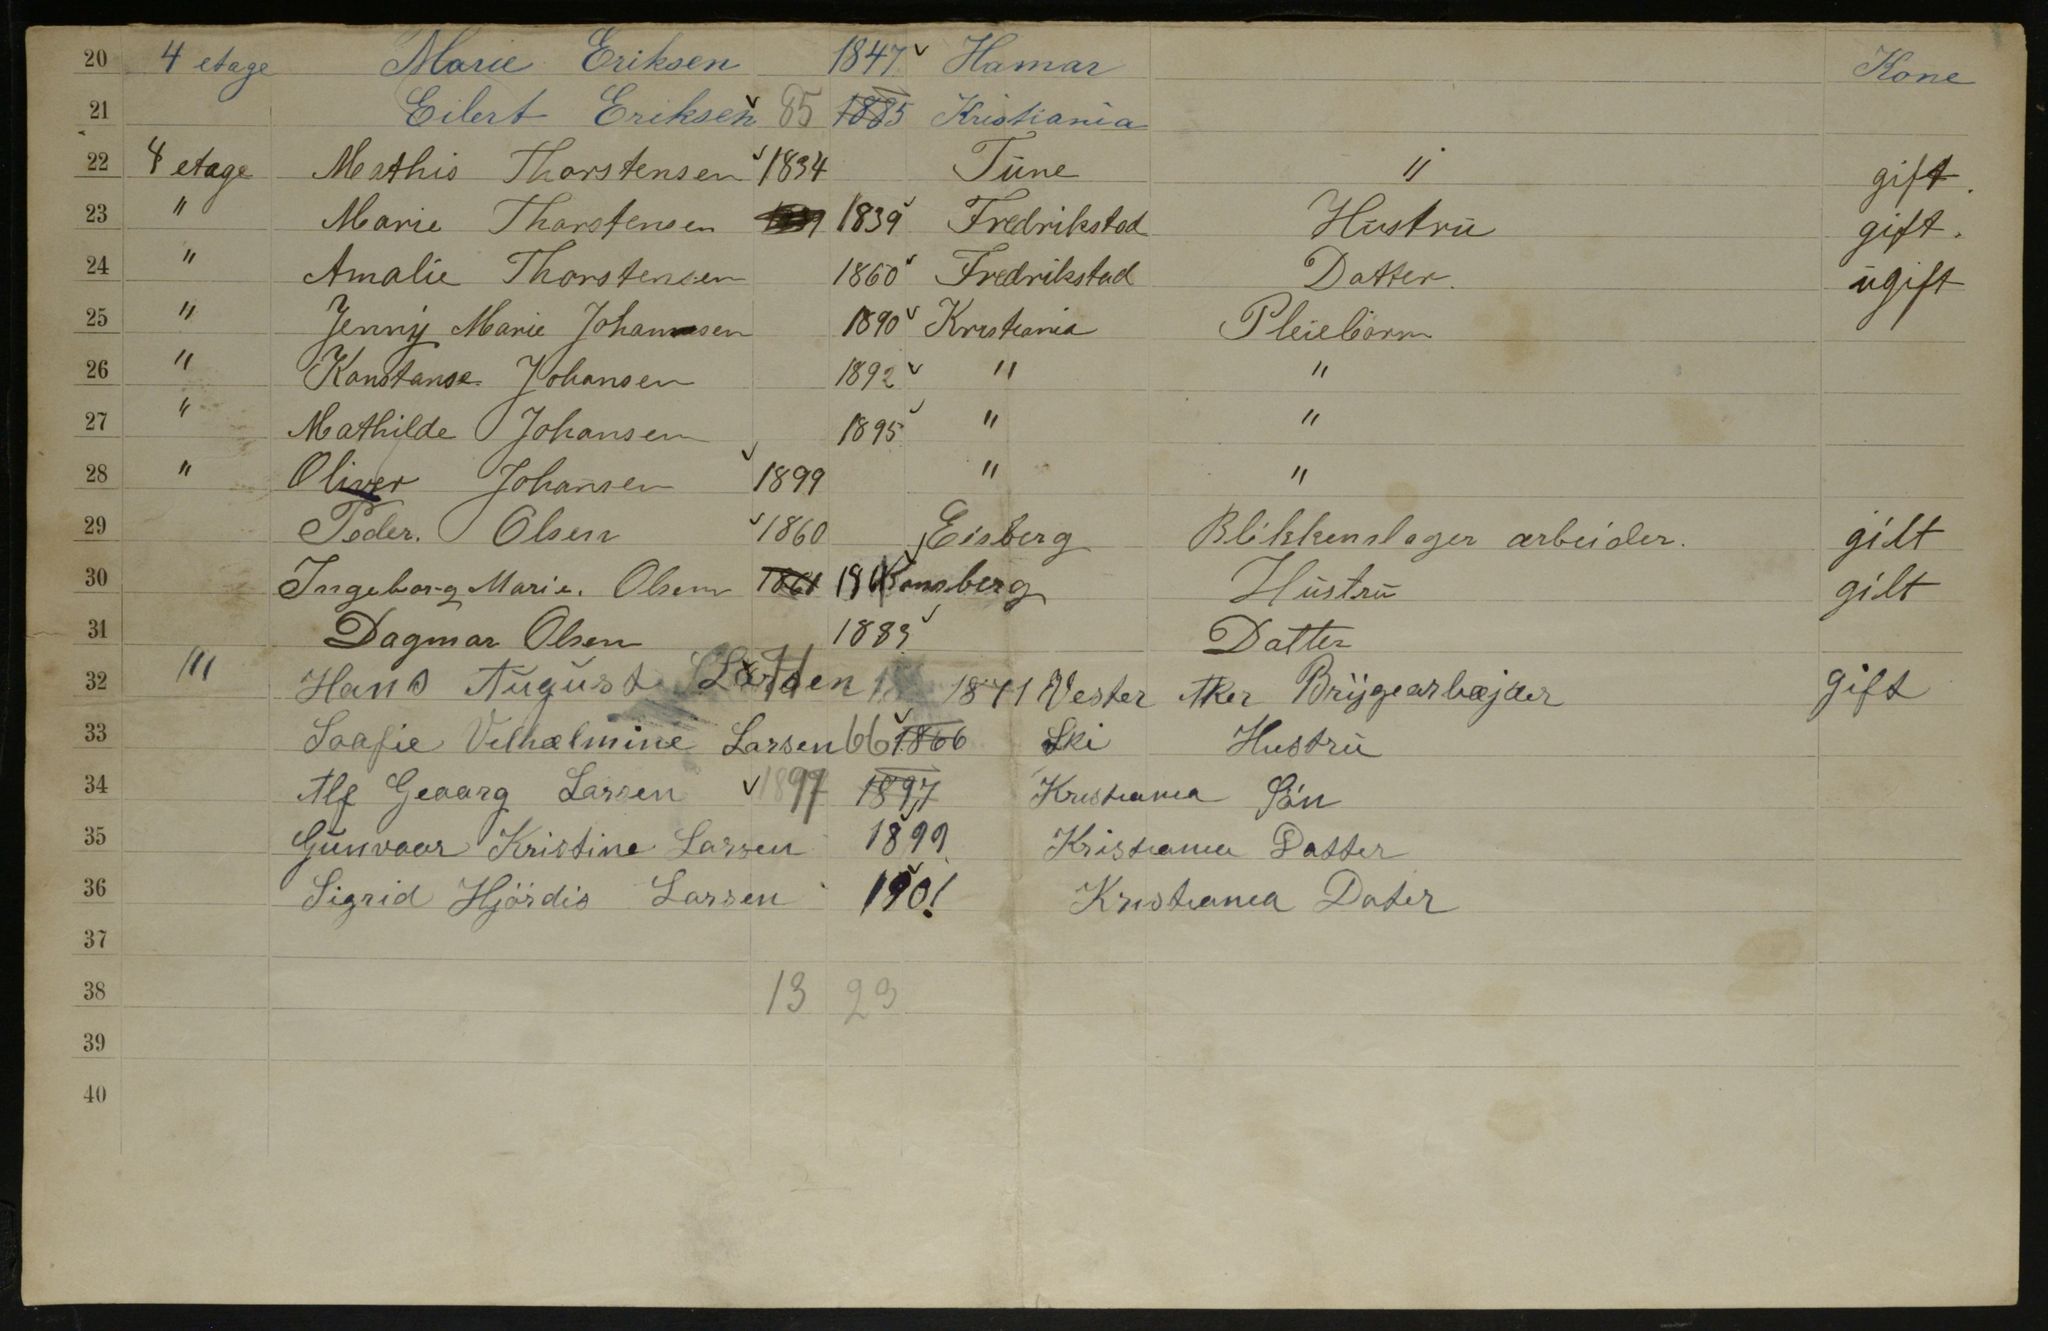 20 4 etage Marie Eriksen 1847 Hamar Kone
21 Eilert Eriksen 85 1885 Kristiania
22 4 etage Mathis Thorstensen 1834 Tune " gift.
23 " Marie Thorstensen 1839 Fredrikstad Hustru gift.
24 " Amalie Thorstensen 1860 Fredrikstad Datter. ugift
25 " Jenny Marie Johannesen 1890 Kristiania Pleiebørn
26 " Konstanse Johansen 1892 " "
27 " Mathilde Johansen 1895 " "
28 " Oliver Johansen 1899 " "
29 Peder. Olsen 1860 Eisberg Blikkenslager arbeider. gift
30 Ingeborg Marie. Olsen 1861 Konsberg Hustru gift
31 Dagmar Olsen 1883 Datter
32 "' Hans August Larsen 1871 Vester Aker Bryggearbæjder gift
33 Soafie Velhælmine Larsen 66 1866 Ski Hustru
34 Alf Geoarg Larsen 1897 1897 Kristiania Sön
35 Gunvaar Kristine Larsen 1899 Kristiania Datter
36 Sigrid Hjördis Larsen 1901 Kristiania Dater
37
38 13 23
39
40